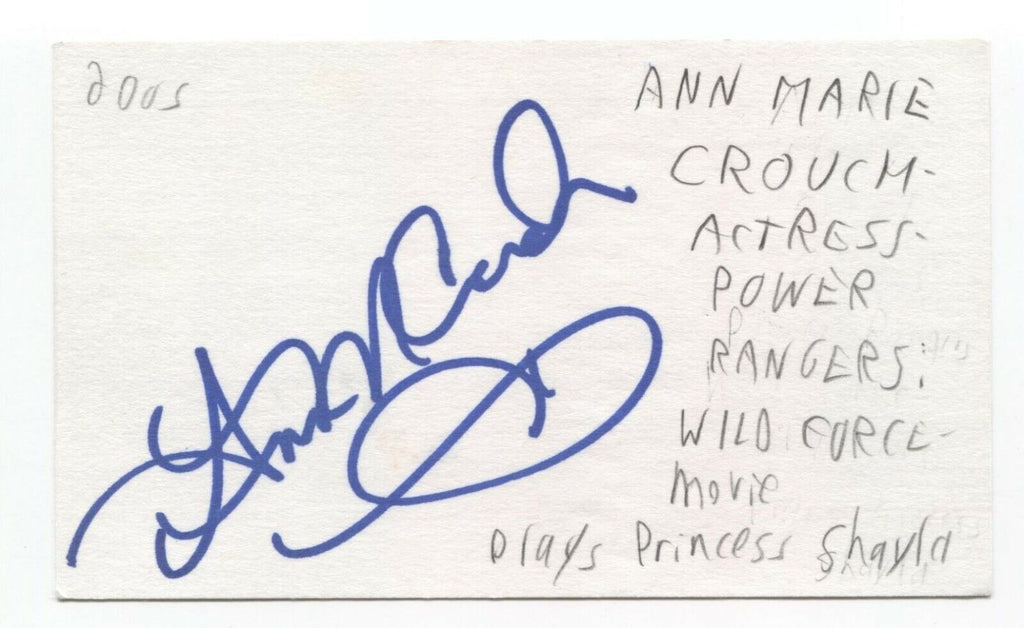 2006
ANN MARIE
CROUCH-
ACTRESS-
POWER
RANGERS:
WILD FORCE-
Movie
Plays Princess Shayla